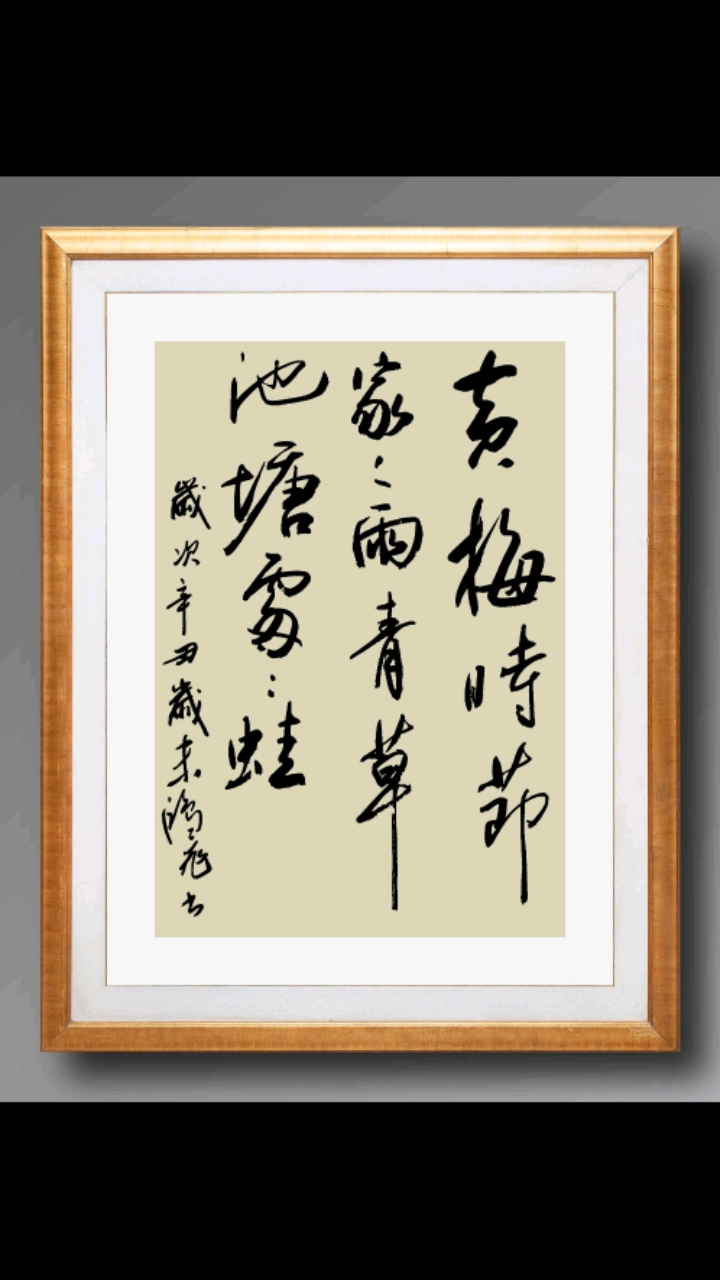 黄梅時節
家〻雨青草
池塘處〻蛙
歲次辛丑歲末鴻飛书